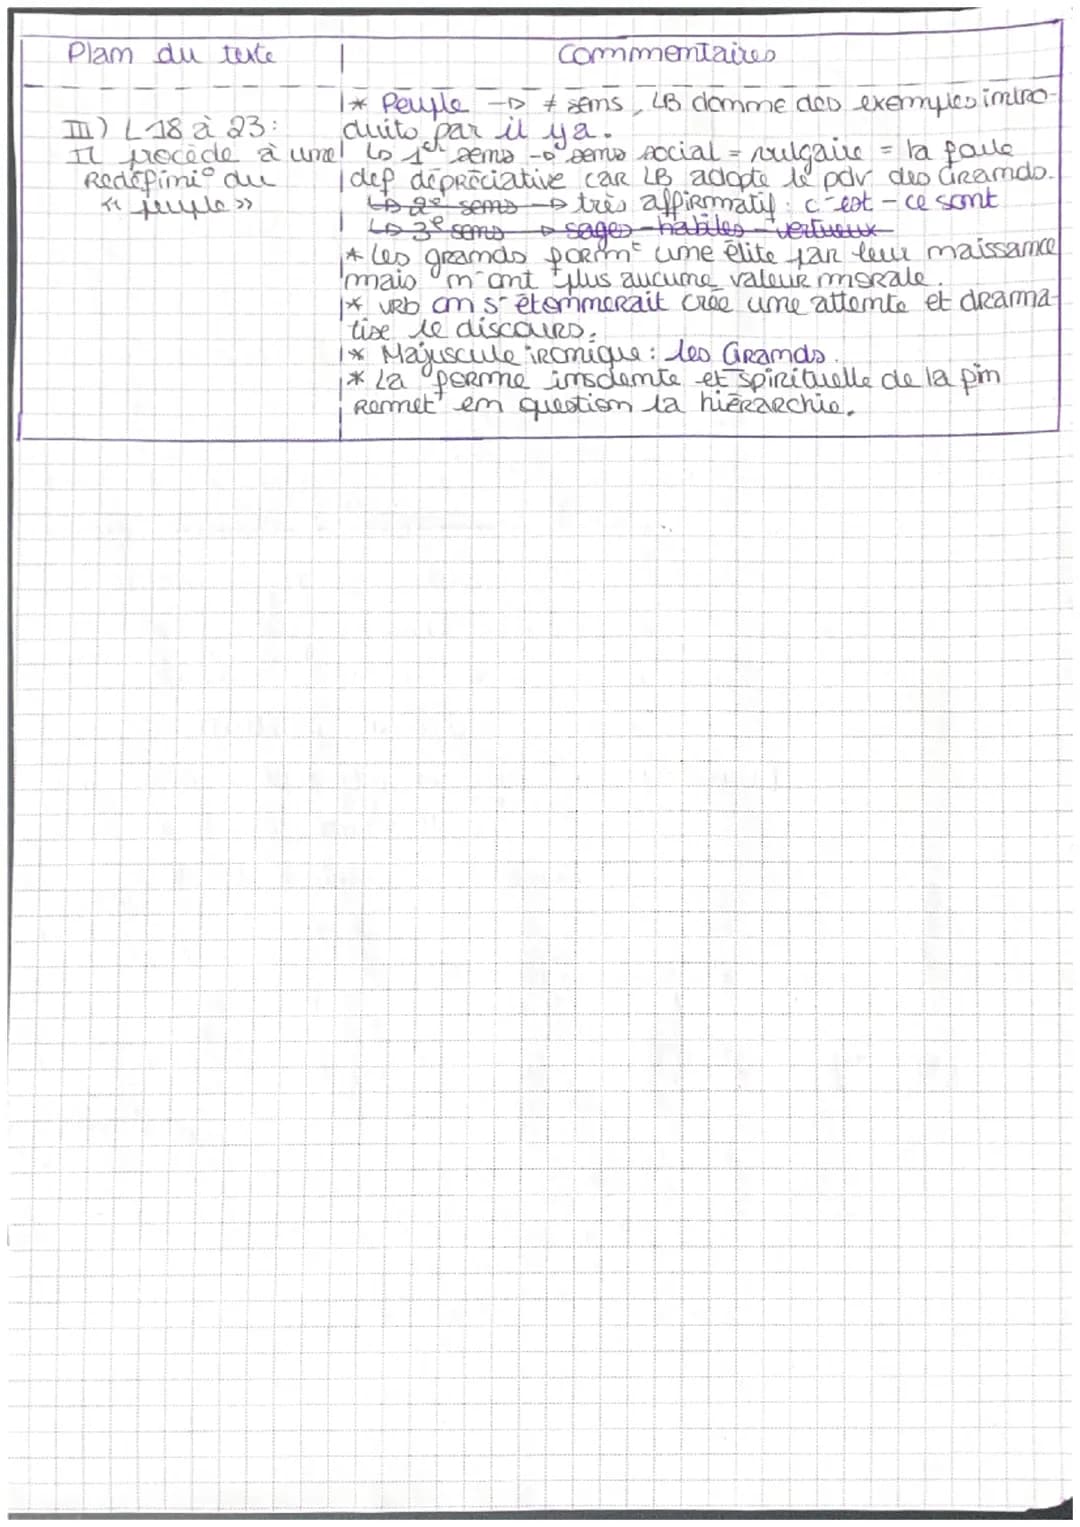 Plan du texte
Commentaires
III) L18 à 23:
Il procède à une
Redéfini° du
« peuple »
* Peuple -> ≠ sens, LB donne des exemples intro-
duits par il ya.
↳ 1er sens -> sens social = vulgaire = la foule
def dépréciative car LB adopte le pdv des Grands.
↳ 2e sens -> très affirmatif : c'est - ce sont
↳ 3e sens -> sages - habiles - vertueux
* Les grands formt une élite par leur naissance
mais n'ont plus aucune valeur morale.
* vrb on s'étonnerait crée une attente et drama-
tise le discours.
* Majuscule ironique : les Grands.
* La forme insolente et spirituelle de la fin
Remet en question la hiérarchie.